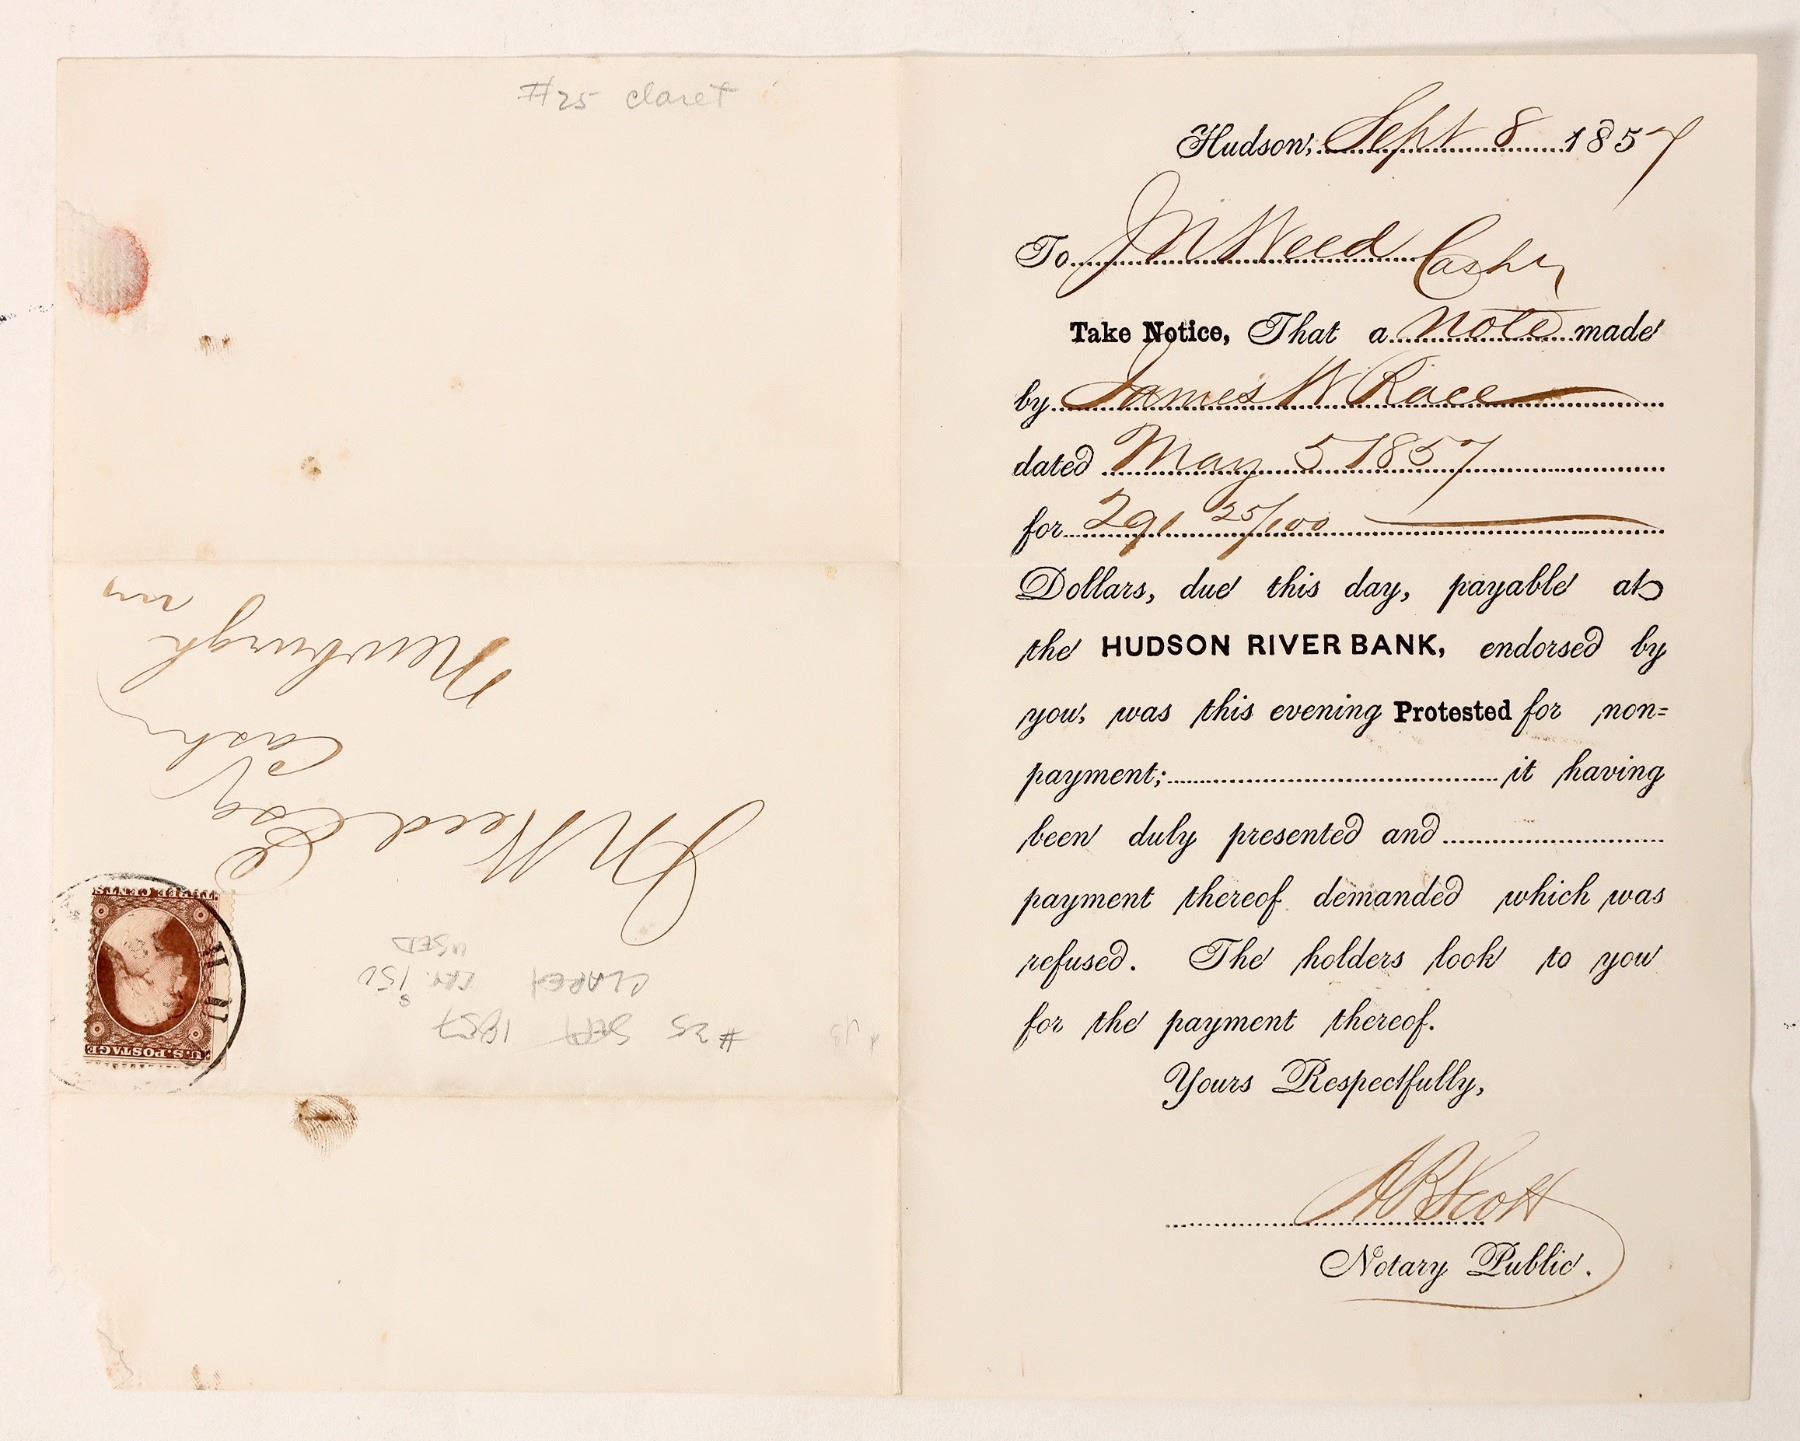 #25 claret
Hudson, Sept 8 1857
To J N Weed Cashr
Take Notice, That a note made
by James W Race
dated May 5 1857
for 291 25/100
Dollars, due this day, payable at
the HUDSON RIVER BANK, endorsed by
you, was this evening Protested for non=
payment; it having
been duly presented and
payment thereof demanded which was
refused. The holders look to you
for the payment thereof.
Yours Respectfully,
A B Scott
Notary Public.
U.S. POSTAGE
THREE CENTS
#25 SEPT 1857
CLARET CAT. $150
USED
J N Weed Esq
Cashr
Newburgh
NY